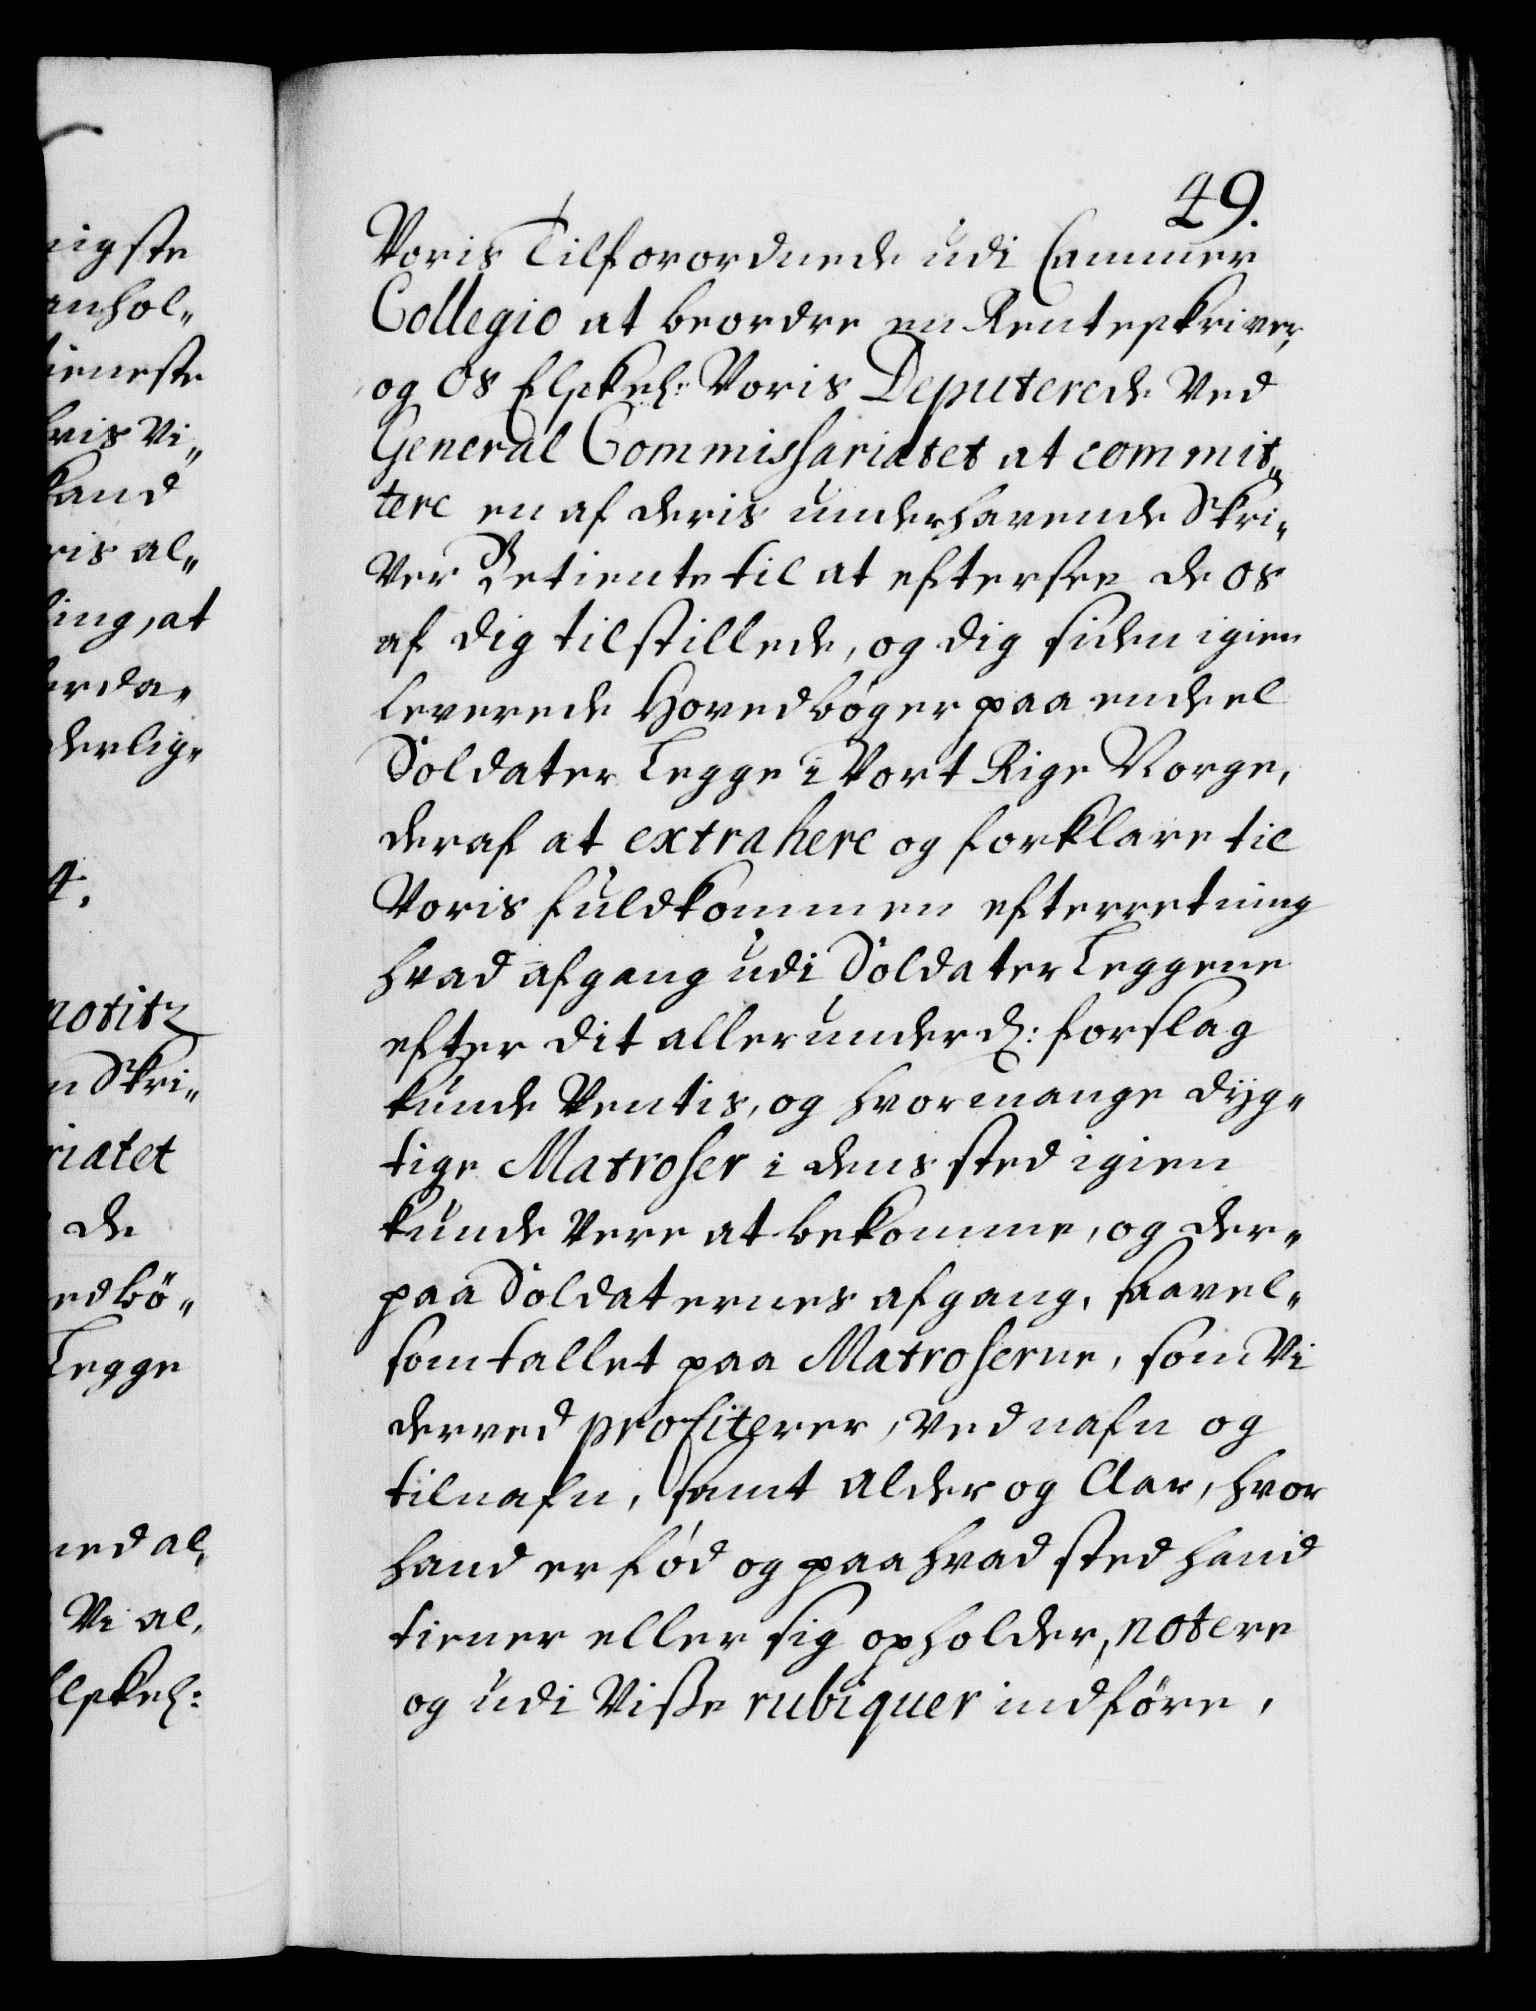 49.
Voris Tilforordnede udi Cammer
Collegio at beordre en Renteskriver,
og Os Elskel: Voris Deputerede Ved
General Commissariatet at commit„
tere en af deris underhavende Skri„
ver Betiente til at eftersee de os
af dig tilstillede, og dig siden igien
leverede Hovedbøger paa endeel
Soldater Legge i Vort Rige Norge,
deraf at extrahere og forklare til
Voris fuldkommen efterretning
hvad afgang udi Soldater Leggene
efter dit allerunderd: forslag
kunde Ventis, og hvormange dyg„
tige Matroser i dens sted igien
kunde Være at bekomme, og der„
paa Soldaternes afgang, saavel„
som tallet paa Matroserne, som Vi
derved profiterer, ved nafn og
tilnafn, samt Alder og Aar, hvor
hand er fød og paa hvad sted hand
tiener eller sig opholder, notere
og udi Visse rubiquer indføre,
nigste
anhol„
tieneste
hvis Vi„
kand
ris al„
ling, at
erda„
derlig„
4.
notitz
n Skri„
riatet
de
edbø„
Legge
med al,
Vi al,
lskel: